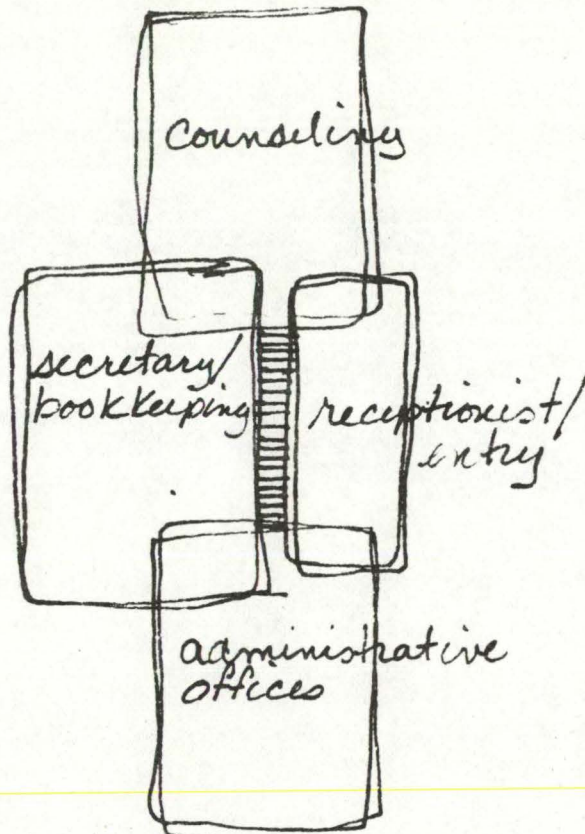 counseling
secretary/
bookkeeping
receptionist/
entry
administrative
offices